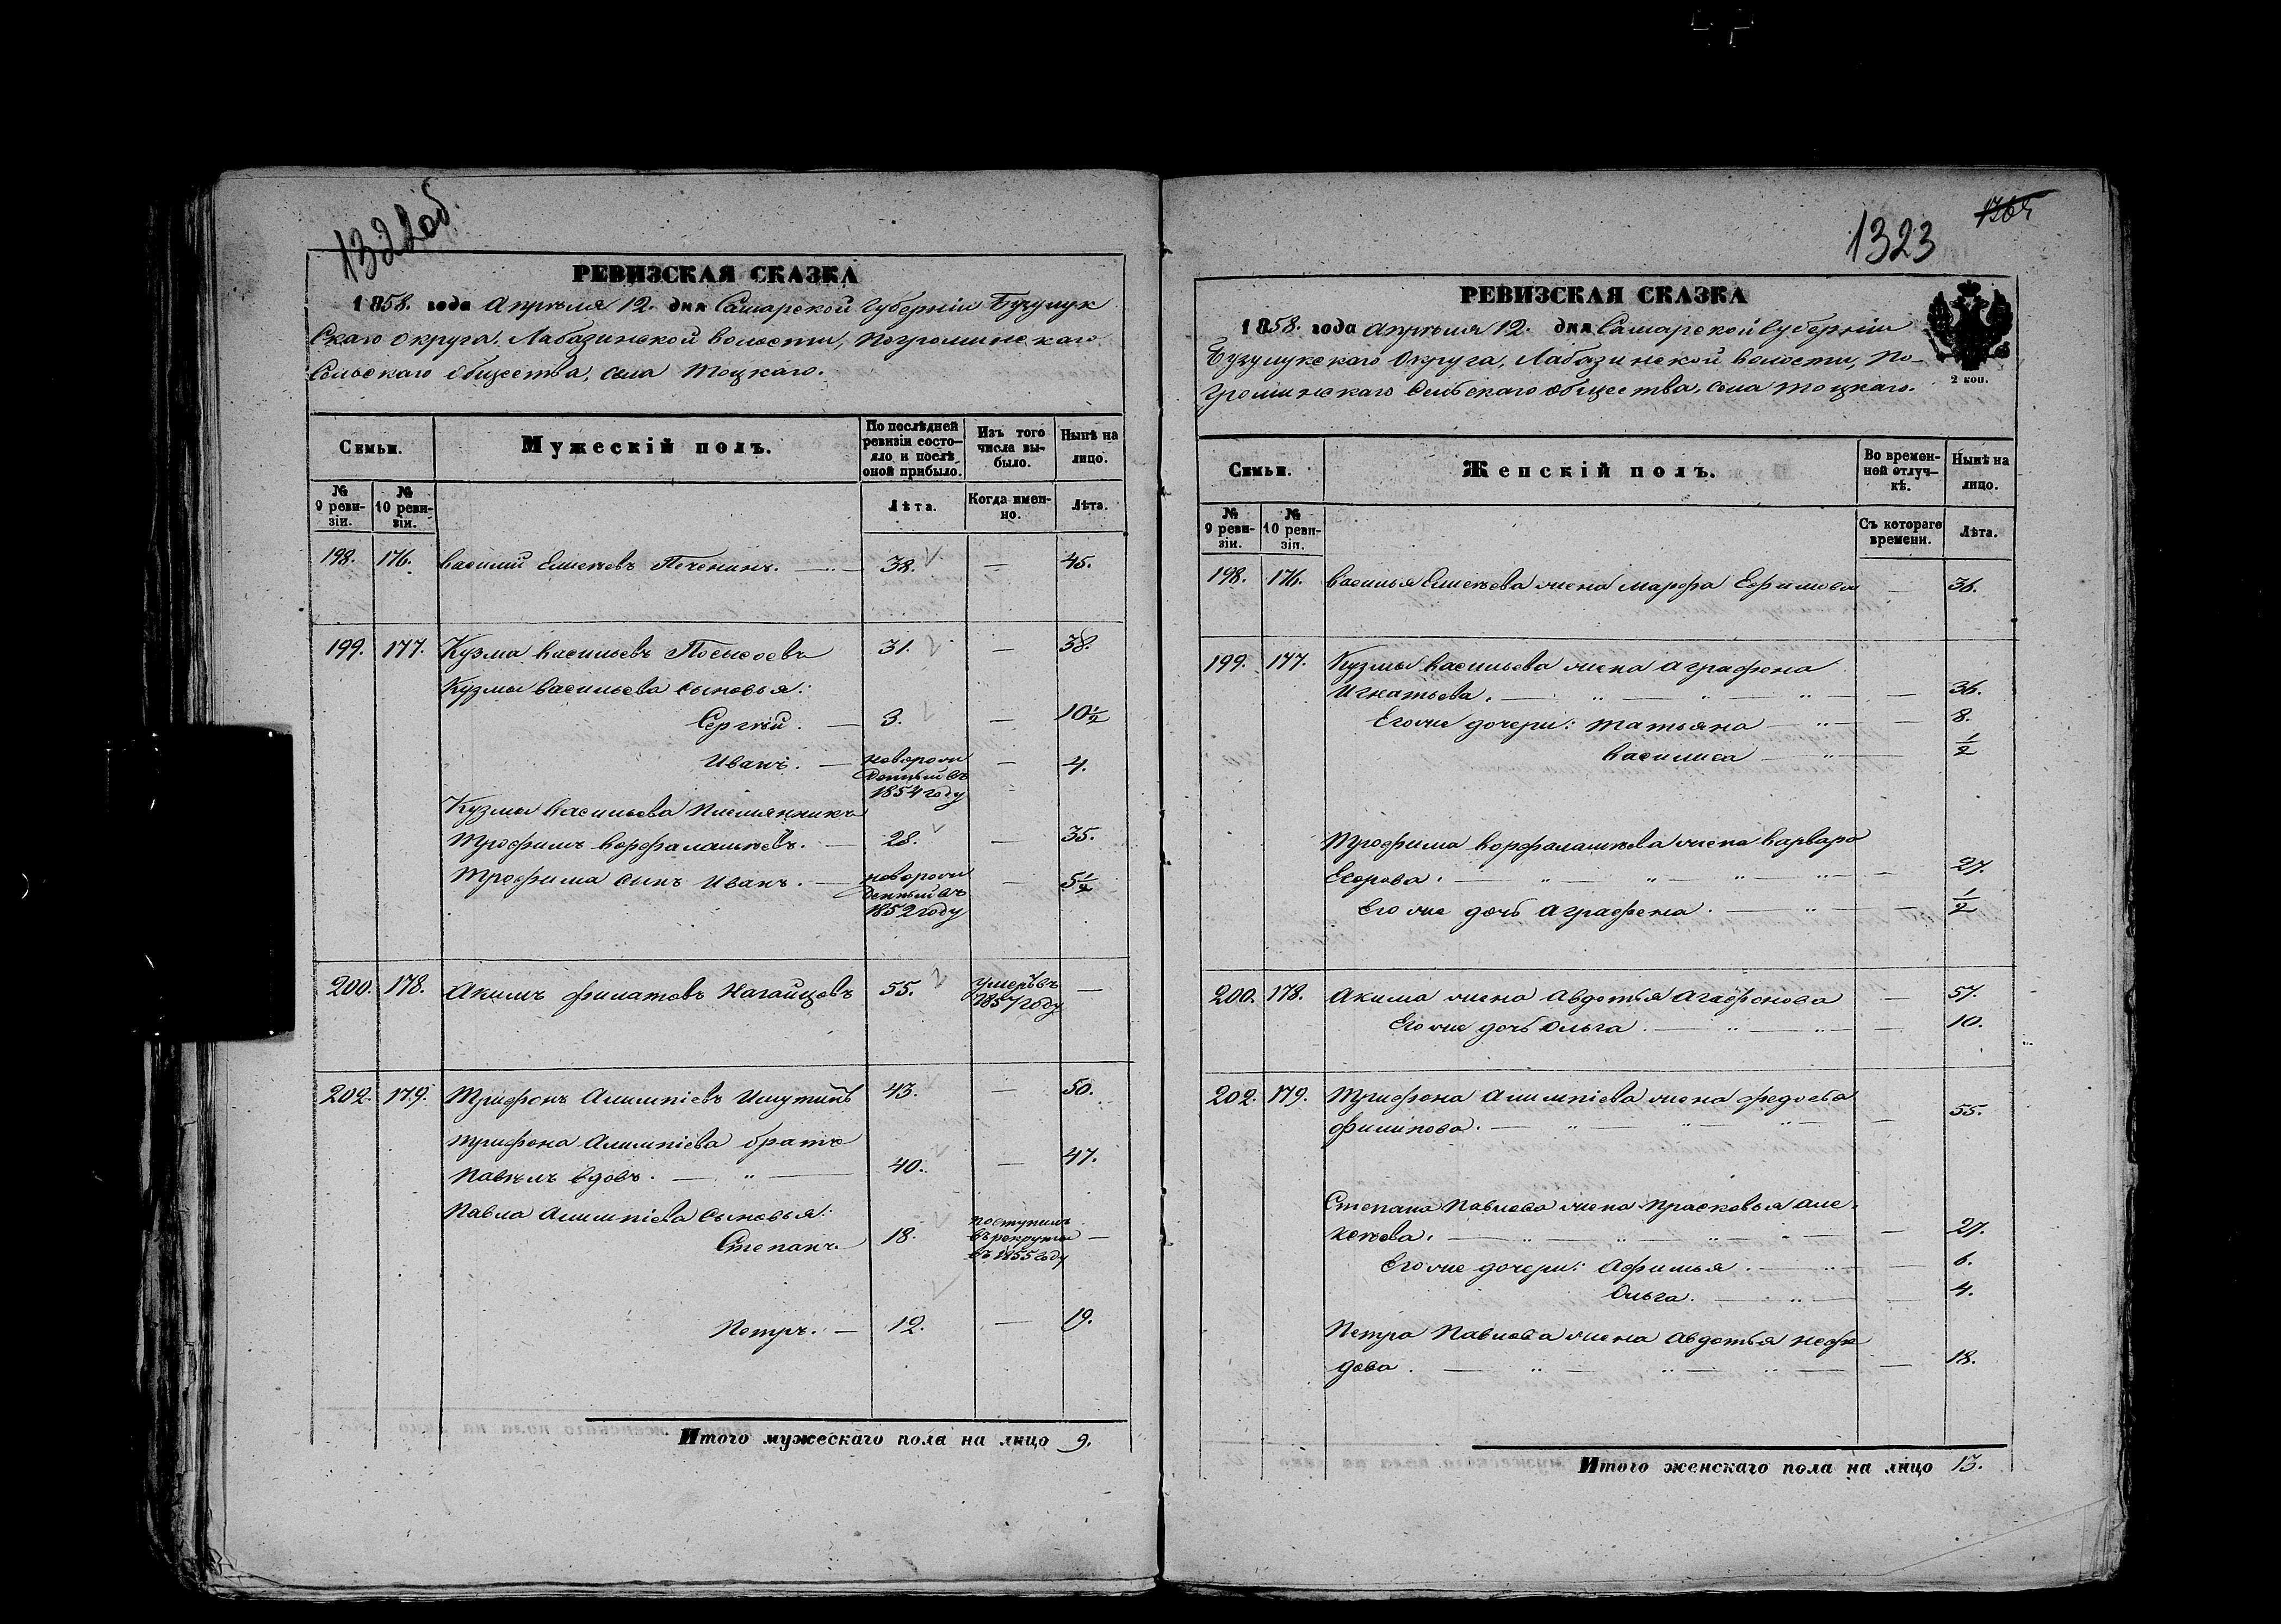 1322об.
РЕВИЗСКАЯ СКАЗКА
1858. года Апрѣля 12. дня Самарской Губерніи Бузулук
Скаго Округа, Лабазинской волости, Погроминскаго
Сельскаго Общества, села Тоцкаго.
Семьи.
Мужескій полъ.
По послѣдней ревизіи состояло и послѣ оной прибыло.
Изъ того числа выбыло.
Нынѣ на лицо.
№ 9 ревизіи.
№ 10 ревизіи.
Лѣта.
Когда именно.
Лѣта.
198. 176. Василий Елисѣевъ Печенинъ. — 38. — 45.
199. 177. Кузма Васильевъ 31. — 38.
Кузмы Васильева сыновья:
Сергѣй. — 3. — 10½
Иванъ. — новорож
денный въ — 4.
1854 году
Кузмы Васильева Племянникъ
Трофимъ Варфаламѣевъ. — 28. — 35.
Трофима сынъ Иванъ. — новорож
денный въ — 5½
1852 году
200. 178. Акимъ Филатовъ Нагайцовъ 55. умеръ въ —
1857 году
202. 179. Трифонъ Алимпіевъ Ишутинъ 43. — 50.
Трифона Алимпіева братъ
Павѣлъ вдовъ. — 40. — 47.
Павла Алимпіева сыновья:
Степанъ 18. поступилъ
въ рекруты —
въ 1855 году
Петръ. — 12. — 19.
Итого мужескаго пола на лицо 9.
1323
РЕВИЗСКАЯ СКАЗКА
1858. года Апрѣля 12. дня Самарской Губерніи
Бузулукскаго Округа, Лабазинской волости, По-
громинскаго Сельскаго Общества, села Тоцкаго.
2 коп.
Семьи.
Женскій полъ.
Во временной отлучкѣ.
Нынѣ на лицо.
№ 9 ревизіи.
№ 10 ревизіи.
Съ котораго времени.
Лѣта.
198. 176. Василья Елисѣева жена Марфа Ефимова — 36.
199. 177. Кузмы Васильева жена Аграфена
Игнатьева. — 36.
Его же дочери: Татьяна — 8.
Василиса — ½
Трофима Варфаламѣева жена Варвара
Егорова. — 27.
Его же дочь Аграфена. — ½
200. 178. Акима жена Авдотья Агафонова — 57.
Его же дочь Ольга. — 10.
202. 179. Трифона Алимпіева жена Федосья
Филипова. — 55.
Степана Павлова жена Прасковья Але-
ксѣева. — 27.
Его же дочери: Афимья. — 6.
Ольга. — 4.
Петра Павлова жена Авдотья Нефе
дова. — 18.
Итого женскаго пола на лицо 13.